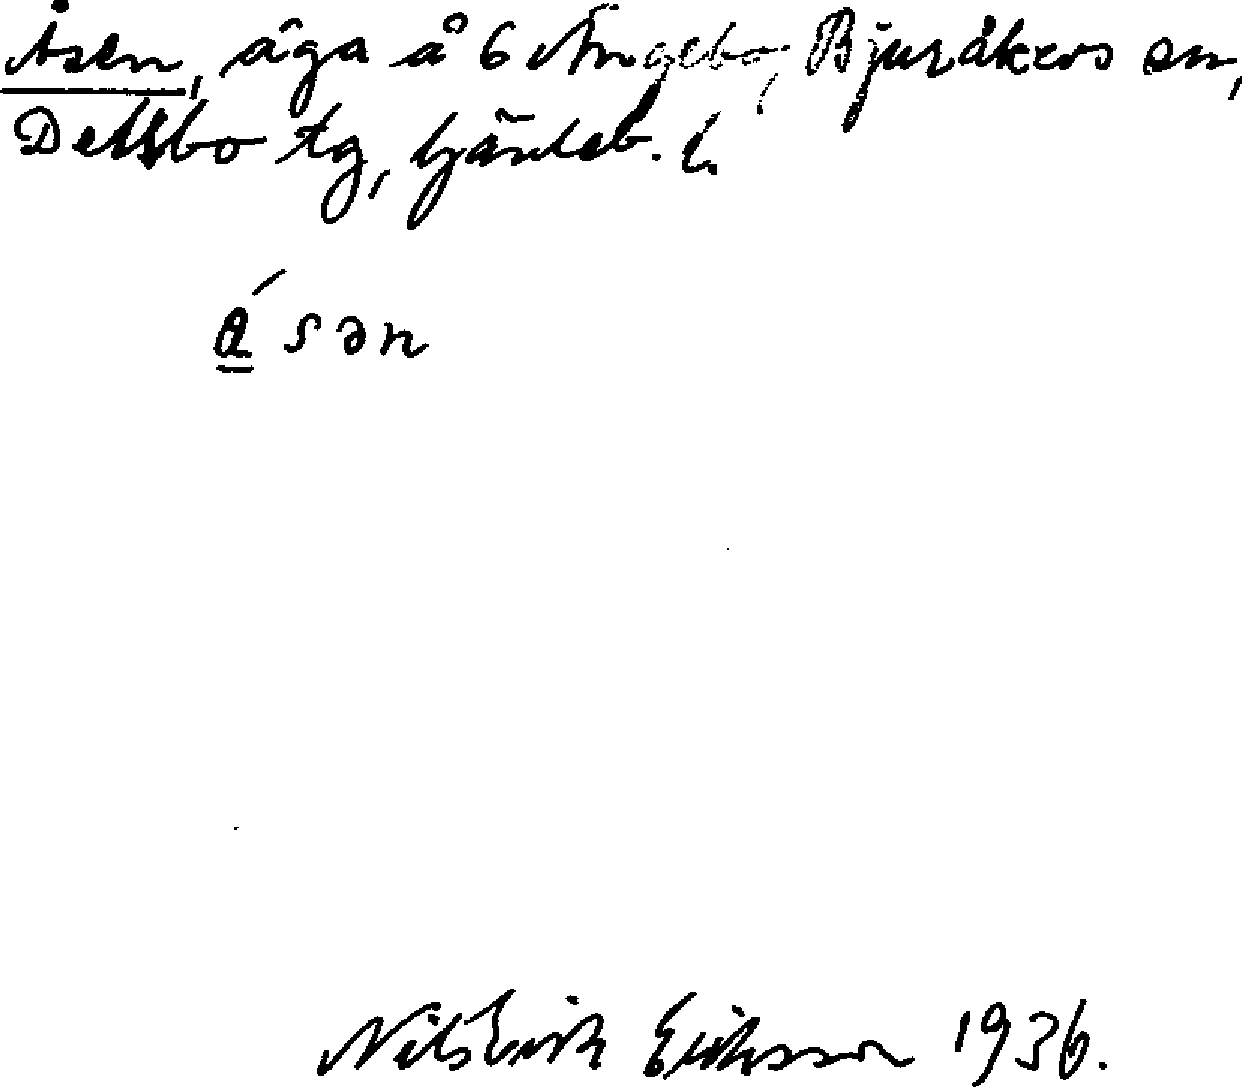 Åsen, äga å 6 Ängebo, Bjuråkers sn,
Delsbo tg, Gävleb. l.
ǻsən
Nils Erik Eriksson 1936.